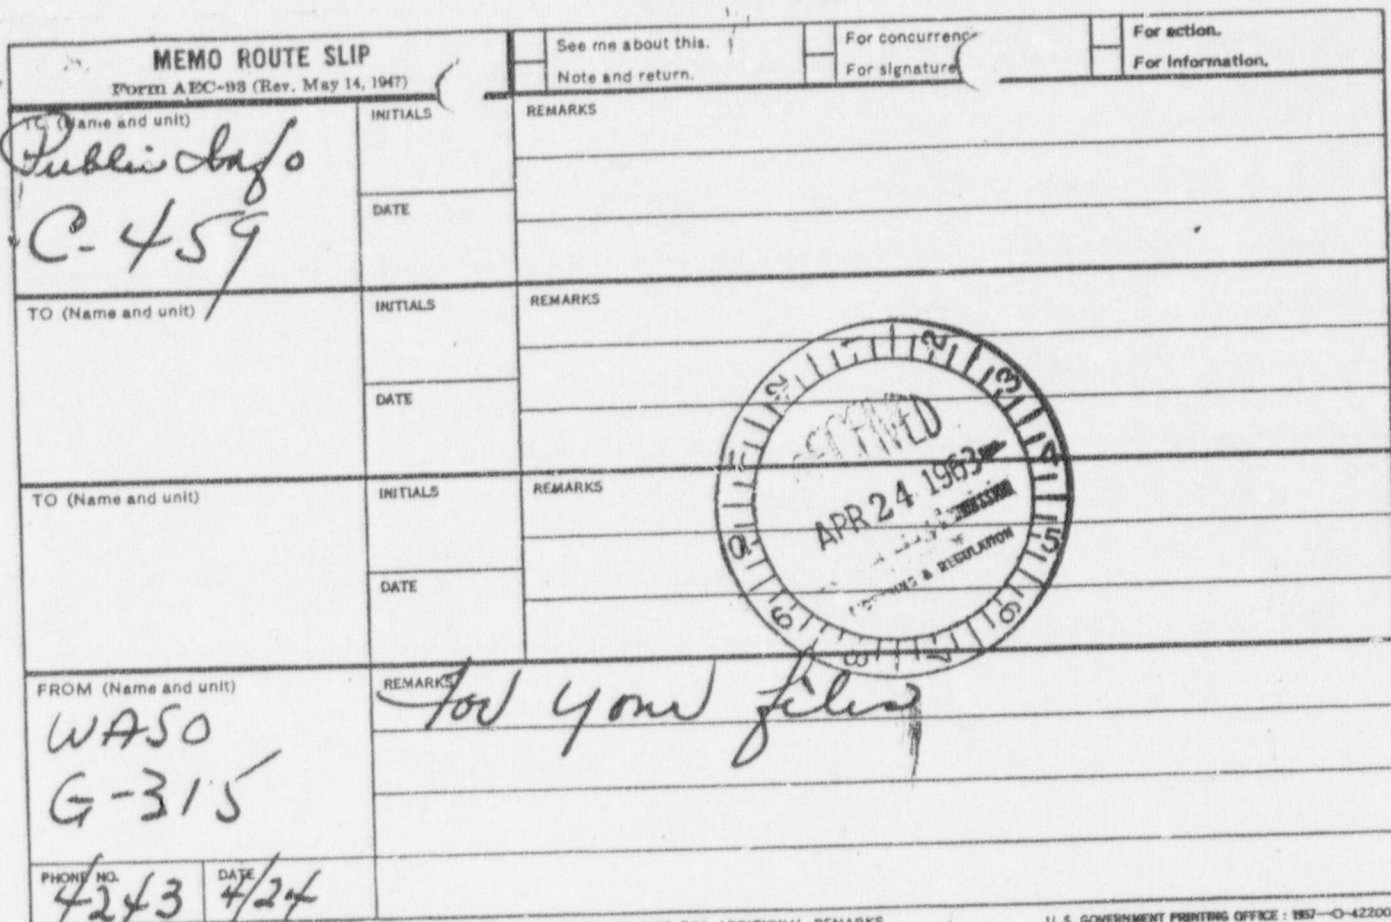 MEMO ROUTE SLIP
Form AEC-93 (Rev. May 14, 1947)
See me about this.
Note and return.
For concurrence
For signature
For action.
For information.
TO (Name and unit)
Public Info
C-459
INITIALS
DATE
REMARKS
TO (Name and unit)
INITIALS
DATE
REMARKS
1 2 3 4 5 6 7 8 9
RECEIVED
APR 24 1963
& REGULATION
TO (Name and unit)
INITIALS
DATE
REMARKS
FROM (Name and unit)
WASO
G-315
REMARKS
for your files
PHONE NO.
4243
DATE
4/24
ADDITIONAL REMARKS
U. S. GOVERNMENT PRINTING OFFICE : 1957—O-42200